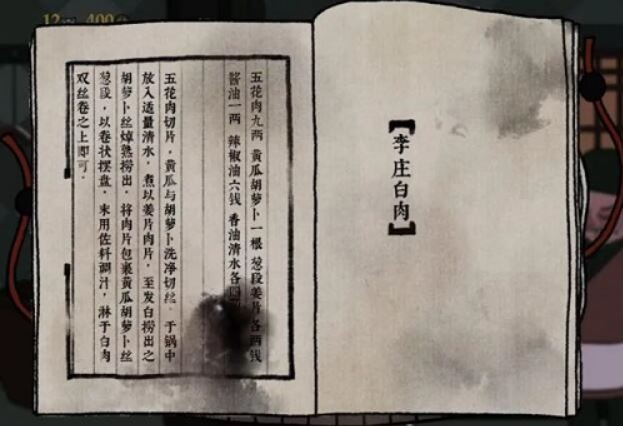 【李庄白肉】
五花肉九两 黄瓜胡萝卜一根 葱段姜片各两钱
酱油一两 辣椒油六钱 香油清水各
五花肉切片，黄瓜与胡萝卜洗净切丝。于锅中
放入适量清水，煮以姜片肉片，至发白捞出之
胡萝卜丝焯熟捞出。将肉片包裹黄瓜胡萝卜丝
葱段，以卷状摆盘。末用佐料调汁，淋于白肉
双丝卷之上即可。